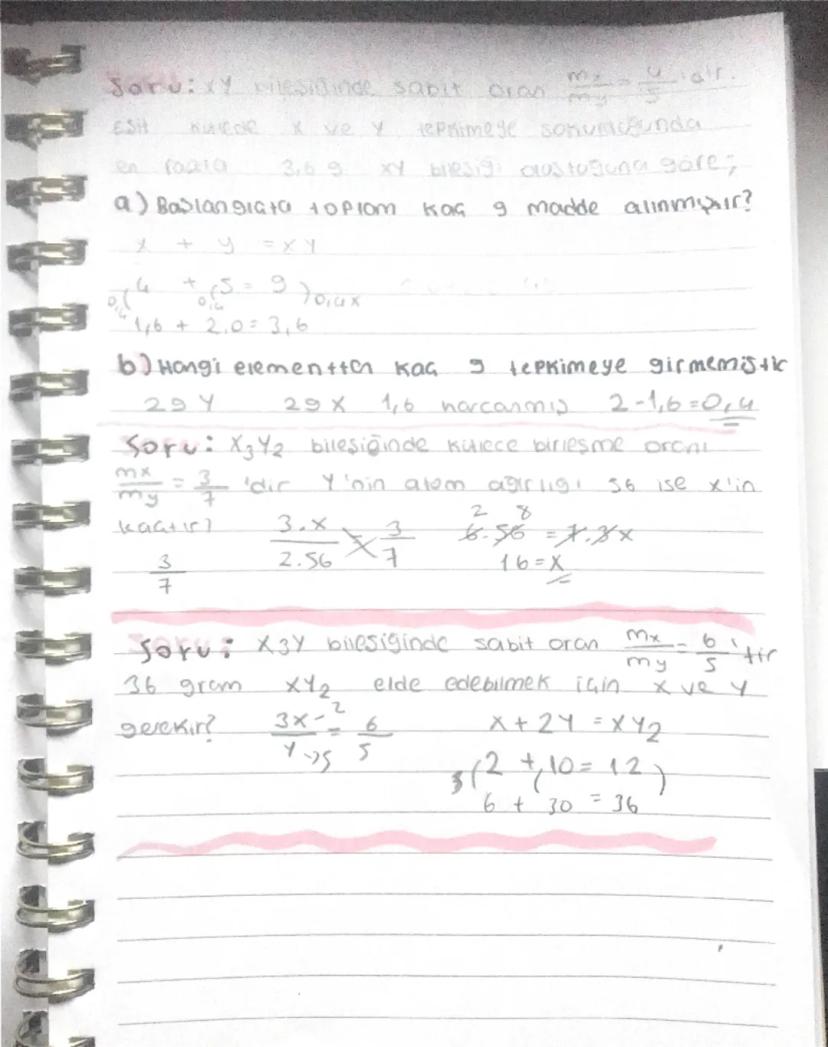 Soru: XY bileşiğinde sabit oran mx/my = 4/5 'dir.
Eşit kütlede x ve y tepkimeye sokulduğunda
en fazla 3,6 g xy bileşiği oluştuğuna göre;
a) Başlangıçta toplam kaç g madde alınmıştır?
x + y = xy
4 + 5 = 9 0,4x
0,4 0,4
1,6 + 2,0 = 3,6
b) Hangi elementten kaç g tepkimeye girmemiştir
2g Y 2g X 1,6 harcanmış 2-1,6=0,4
Soru: X3Y2 bileşiğinde kütlece birleşme oranı
mx/my = 3/7 'dir Y'nin atom ağırlığı 56 ise x'in
kaçtır? 3.x/2.56 3/7 6.56 = 7.3x 2 8
3/7 16=x
Soru: X3Y bileşiğinde sabit oran mx/my = 6/5 'tir
36 gram XY2 elde edebilmek için x ve y
gerekir? 3x→2/Y→5 = 6/5 x+2Y = XY2
3(2 + 10 = 12)
6 + 30 = 36